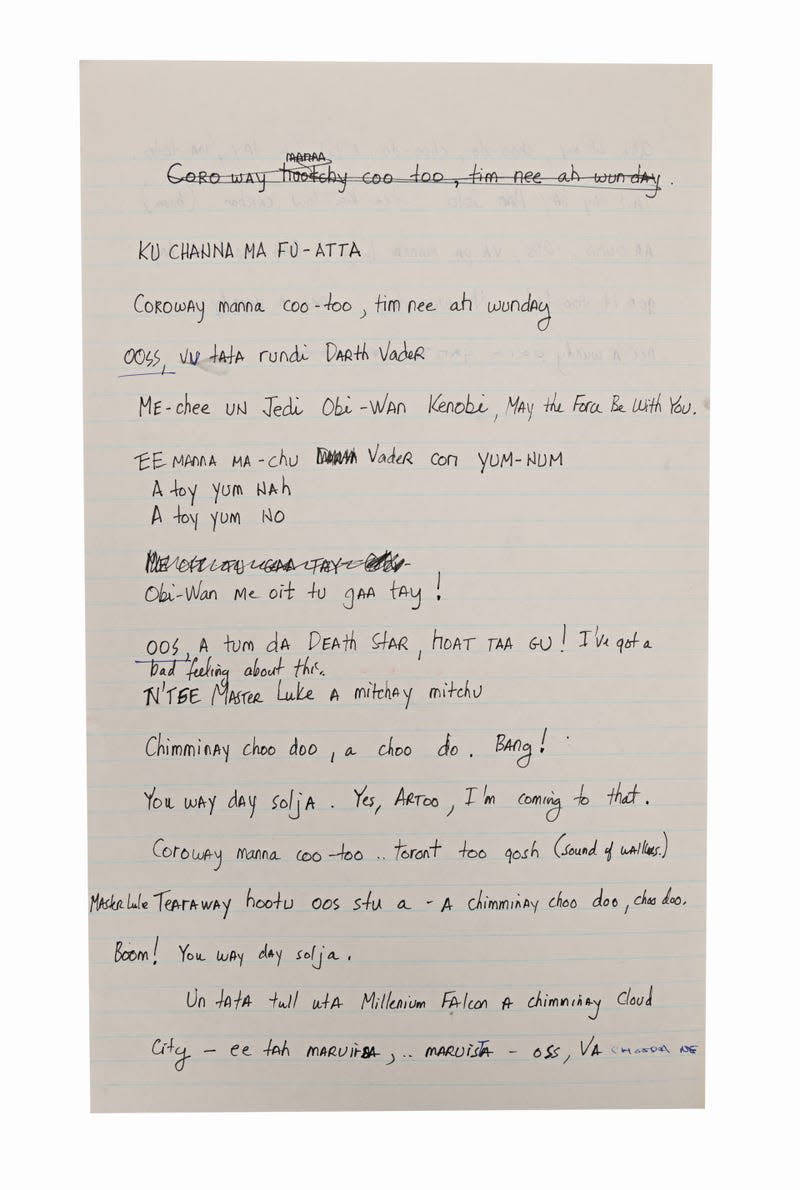 MANAA
CORO WAY hootchy coo too, tim nee ah wunday.
KU CHANNA MA FU-ATTA
COROWAY manna coo-too, tim nee ah wunday
OOSS, VU tata rundi DARTH VADER
ME-chee UN Jedi Obi-WAN Kenobi, MAY the Force Be With You.
EE MANNA MA-chu Vader con YUM-NUM
A toy yum NAh
A toy yum NO
Obi-Wan Me oit tu gaa tay!
OOS, A tum dA DEATH STAR, HOAT TAA GU! I've got a
bad feeling about this.
N'TEE MASTER Luke A mitchay mitchu
Chimminay choo doo, a choo do. BANG!
You way day solja. Yes, ARTOO, I'm coming to that.
Coroway manna coo-too.. toront too gosh (sound of walkers.)
Master Luke TEARAWAY hootu oos stu a - A chimminay choo doo, choo doo.
Boom! You way day solja.
Un tata tull uta Millenium FAlcon A chimminay Cloud
City - ee tah MARUITBA,.. MARUISTA - oss, VA NE